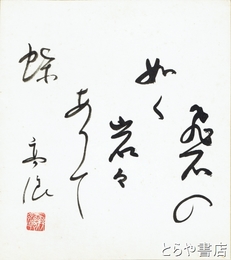 飛石の
如く岩々
ありて
蝶
とらや書店